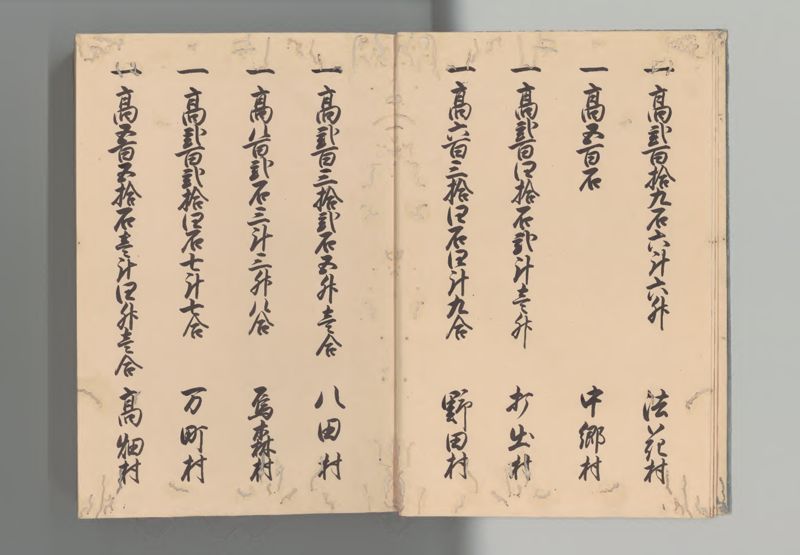 一高弐百拾九石六斗六升 法花村
一高五百石 中郷村
一高弐百四拾石弐斗壱升 打出村
一高六百三拾四石四斗九合 野田村
一高弐百三拾弐石五升壱合 八田村
一高八百弐石三斗三升八合 烏森村
一高弐百弐拾四石七斗七合 万町村
一高五百五拾石壱斗四升壱合 高畑村